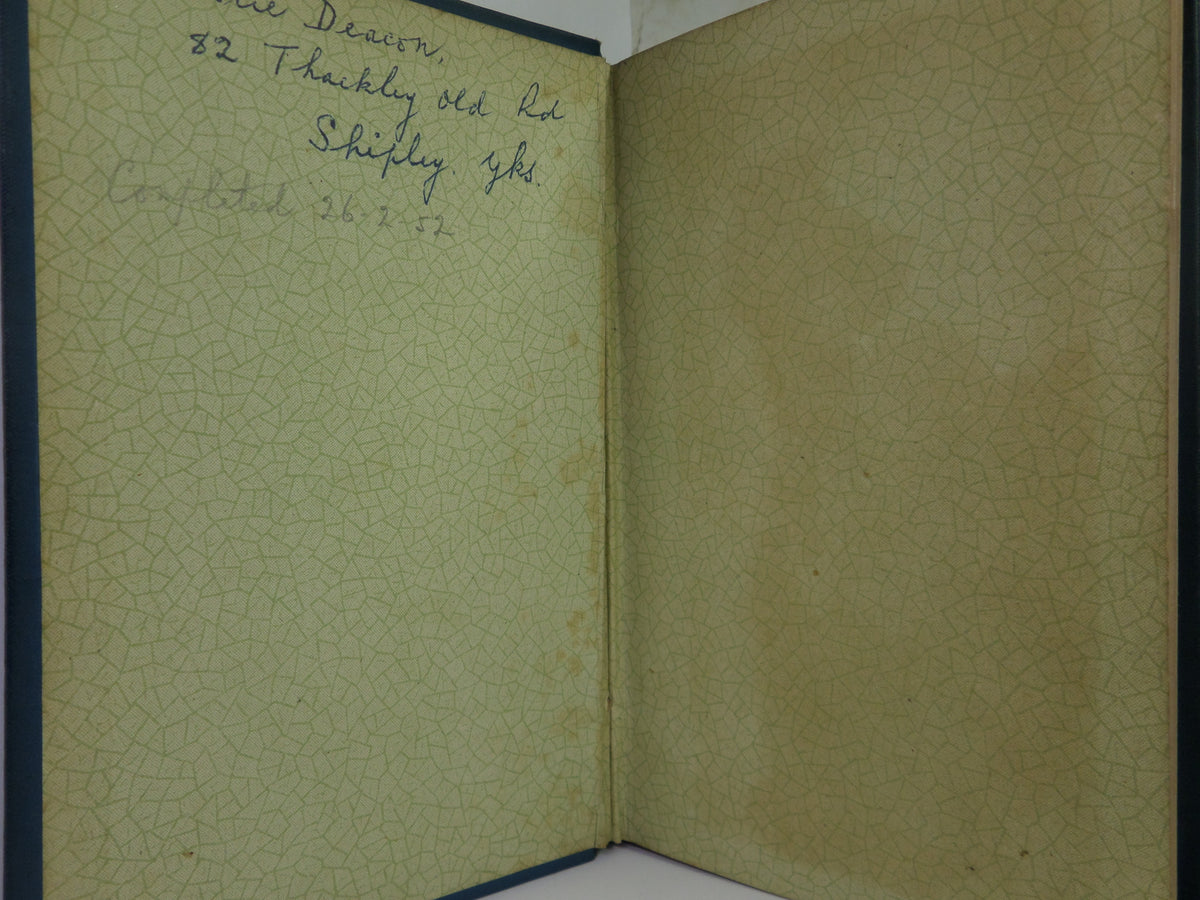 Deacon,
82 Thackley old Rd
Shipley. Yks.
Completed 26-2-52